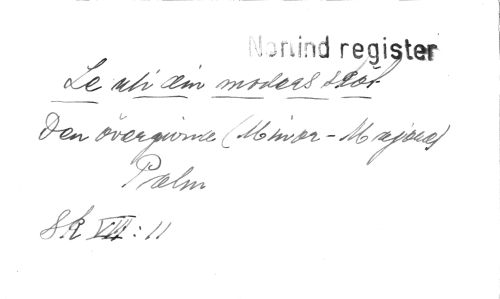 Norlind register
Le uti din moders sköt
Den övergivne (Minor-Majore)
Palm
SK VIII:11